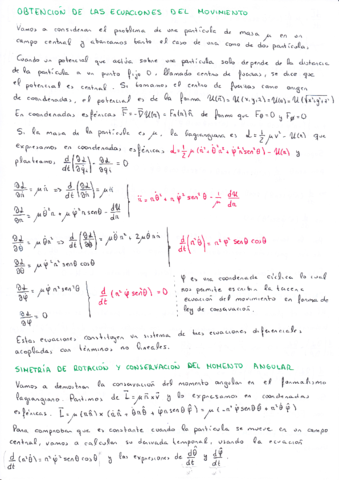 OBTENCIÓN DE LAS ECUACIONES DEL MOVIMIENTO
Vamos a considerar el problema de una partícula de masa μ en un
campo central y abarcamos tanto el caso de una como de dos partículas.
Cuando un potencial que actúa sobre una partícula solo depende de la distancia
de la partícula a un punto fijo O, llamado centro de fuerzas, se dice que
el potencial es central. Si tomamos el centro de fuerzas como origen
de coordenadas, el potencial es de la forma U(r̄)=U(x,y,z)=U(r)=U(√x²+y²+z²)
En coordenadas esféricas F̄=-∇̄U(r)=Fr(r)r̂ de forma que Fθ=0 y Fφ=0
Si la masa de la partícula es μ, la lagrangiana es L=½μv²-U(r) que
expresamos en coordenadas esféricas L=½μ(ṙ²+θ̇²r²+φ̇²r²sen²θ)-U(r) y
planteamos d/dt(∂L/∂q̇)-∂L/∂q=0
∂L/∂ṙ=μṙ ⇒ d/dt(∂L/∂ṙ)=μr̈
r̈=rθ̇²+rφ̇²sen²θ-1/μ dU/dr
∂L/∂r=μθ̇²r+μφ̇²rsen²θ-dU/dr
∂L/∂θ̇=μθ̇r² ⇒ d/dt(∂L/∂θ̇)=μθ̈r²+2μθ̇rṙ
d/dt(r²θ̇)=r²φ̇²senθcosθ
∂L/∂θ=μφ̇²r²senθcosθ
∂L/∂φ̇=μφ̇r²sen²θ
d/dt(r²φ̇sen²θ)=0
∂L/∂φ=0
φ es una coordenada cíclica la cual
nos permite escribir la tercera
ecuación del movimiento en forma de
ley de conservación.
Estas ecuaciones constituyen un sistema de tres ecuaciones diferenciales
acopladas con términos no lineales.
SIMETRÍA DE ROTACIÓN Y CONSERVACIÓN DEL MOMENTO ANGULAR
Vamos a demostrar la conservación del momento angular en el formalismo
lagrangiano. Partimos de L̄=μr̄×v̄ y lo expresamos en coordenadas
esféricas. L̄=μ(rr̂)×(ṙr̂+θ̇rθ̂+φ̇rsenθφ̂)=μ(-r²φ̇senθθ̂+r²θ̇φ̂)
Para comprobar que es constante cuando la partícula se mueve en un campo
central, vamos a calcular su derivada temporal, usando la ecuación
d/dt(r²θ̇)=r²φ̇²senθcosθ y las expresiones de dθ̂/dt y dφ̂/dt